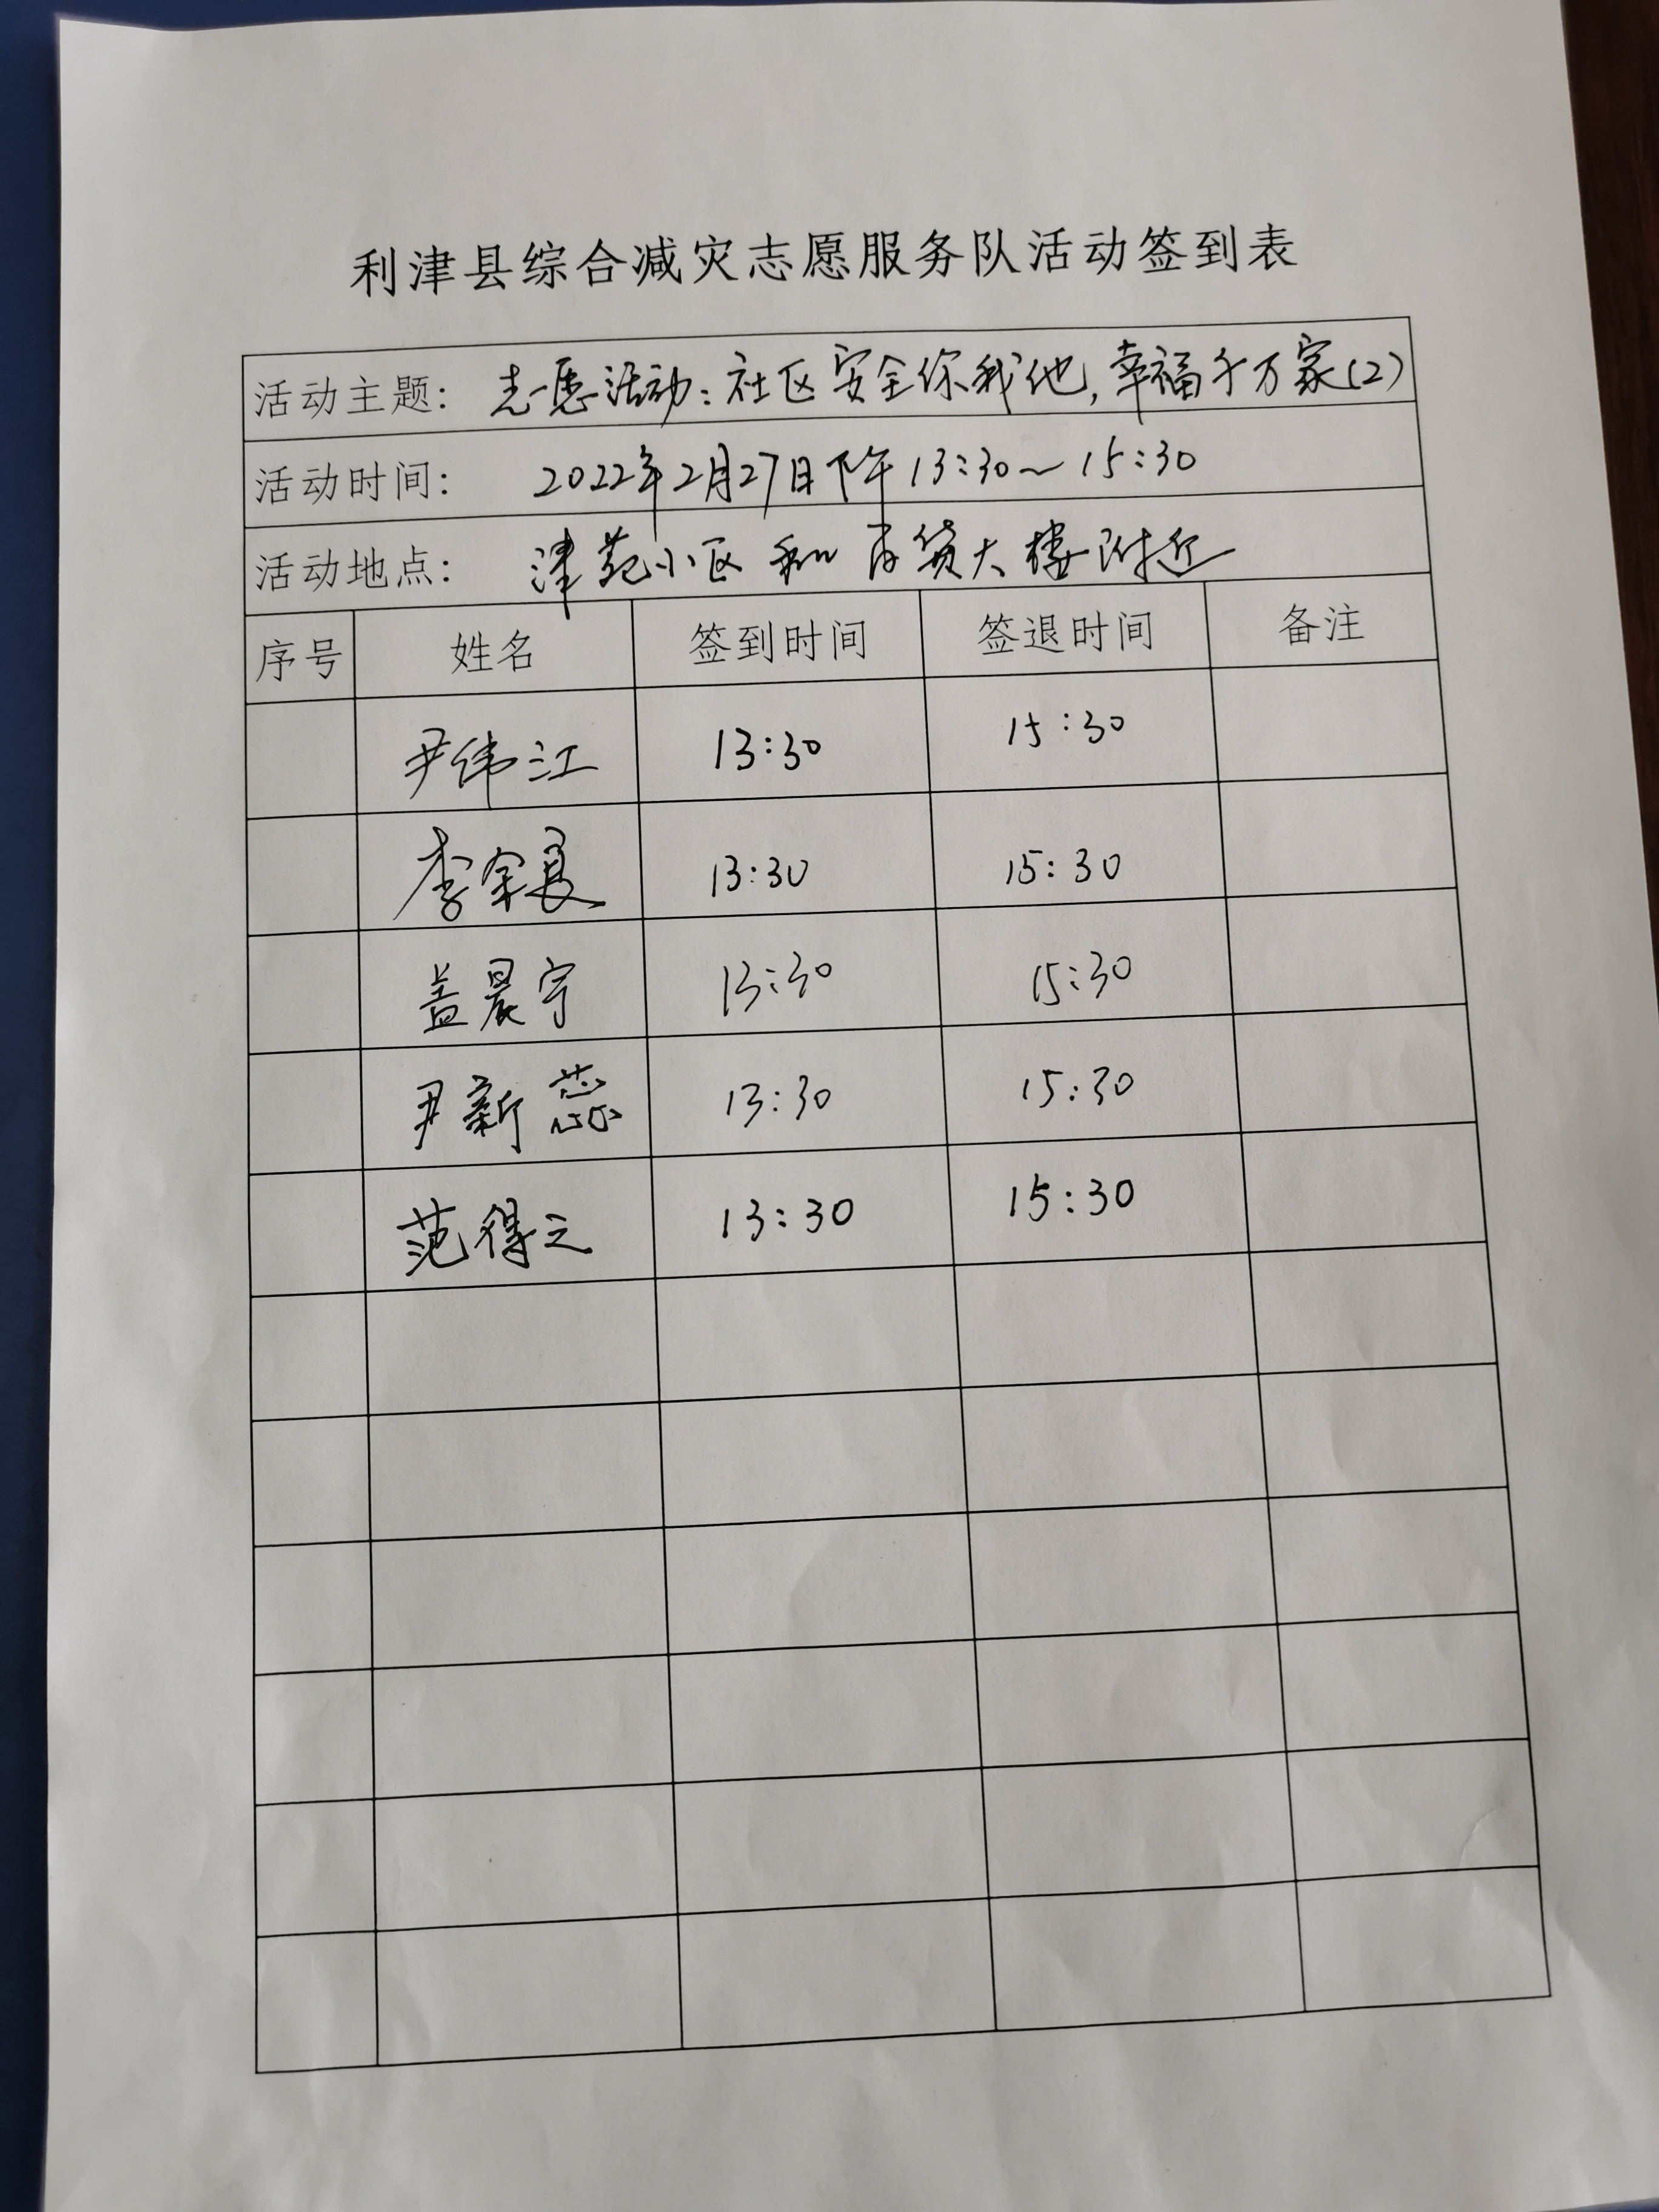 利津县综合减灾志愿服务队活动签到表
活动主题: 志愿活动:社区安全你我他,幸福千万家(2)
活动时间: 2022年2月27日下午13:30~15:30
活动地点: 津苑小区和百货大楼附近
序号 姓名 签到时间 签退时间 备注
尹伟江 13:30 15:30
李 13:30 15:30
盖晨宇 13:30 15:30
尹新蕊 13:30 15:30
范得之 13:30 15:30